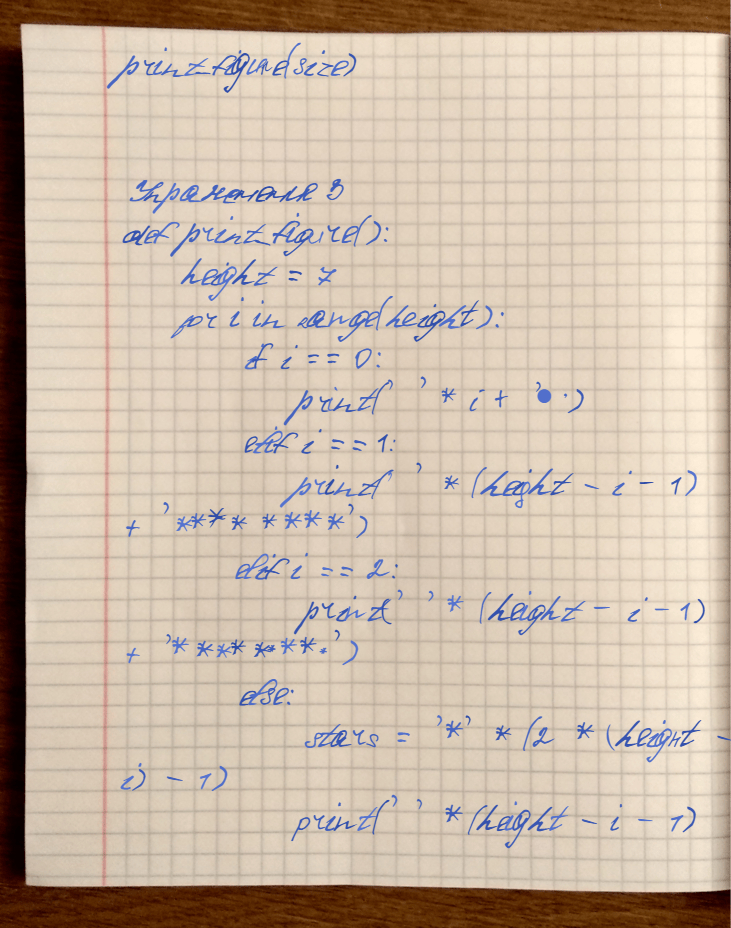 print_figure(size)
Упражнения 3
def print_figure():
height = 7
for i in range(height):
if i == 0:
print(' ' * i + '
elif i == 1:
print(' ' * (height - i - 1)
+ '**** ****')
elif i == 2:
print(' ' * (height - i - 1)
+ '* **** **.')
else:
stars = '*' * (2 * (height -
i) - 1)
print(' ' * (height - i - 1)